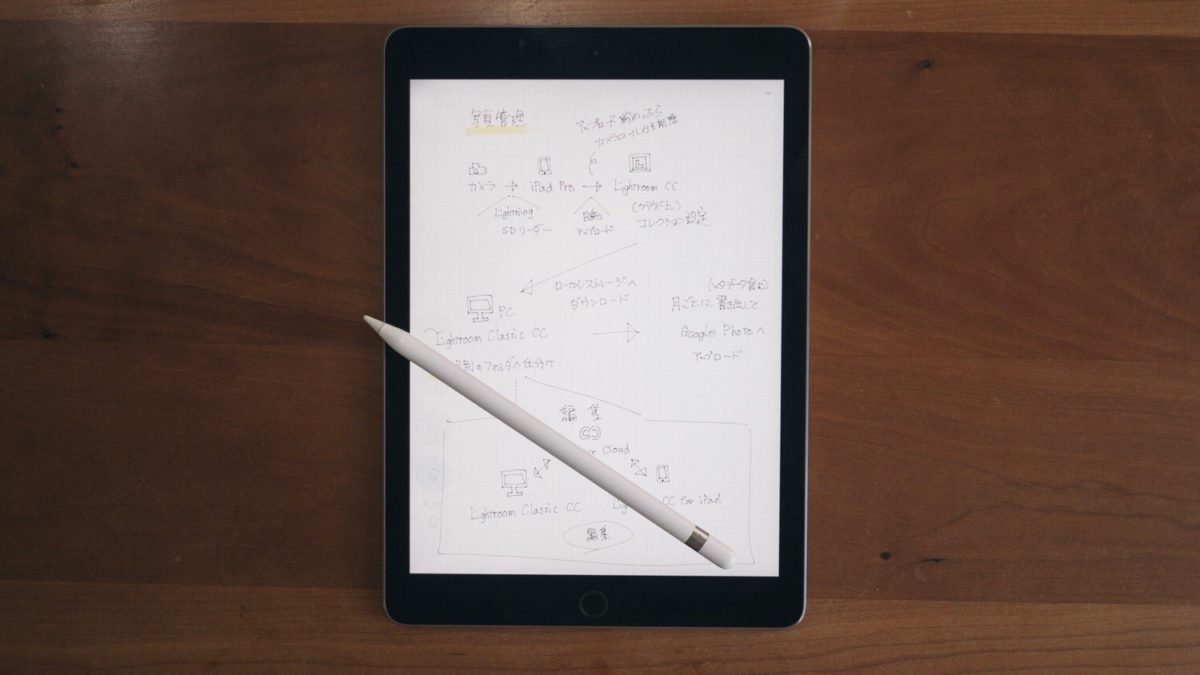 写真管理
アップロード終わったら
カメラロールから削除
カメラ → iPad Pro → Lightroom CC
Lightning
SDリーダー
自動
アップロード
(クラウド上)
コレクション設定
ローカルストレージへ
ダウンロード
PC
Lightroom Classic CC
別のフォルダへ仕分け
(メタデータ含む)
月ごとに書き出して
Google Photoへ
アップロード
編集
Cloud
Lightroom Classic CC
CC for iPad
編集